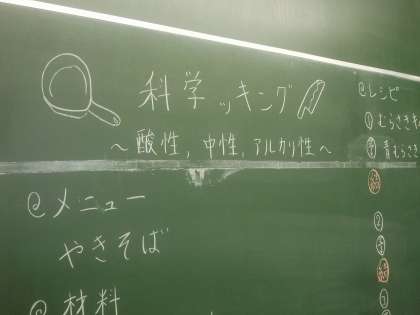 科学ッキング
～酸性,中性,アルカリ性～
@メニュー
やきそば
@材料
@レシピ
①むらさきキ
青むらさき